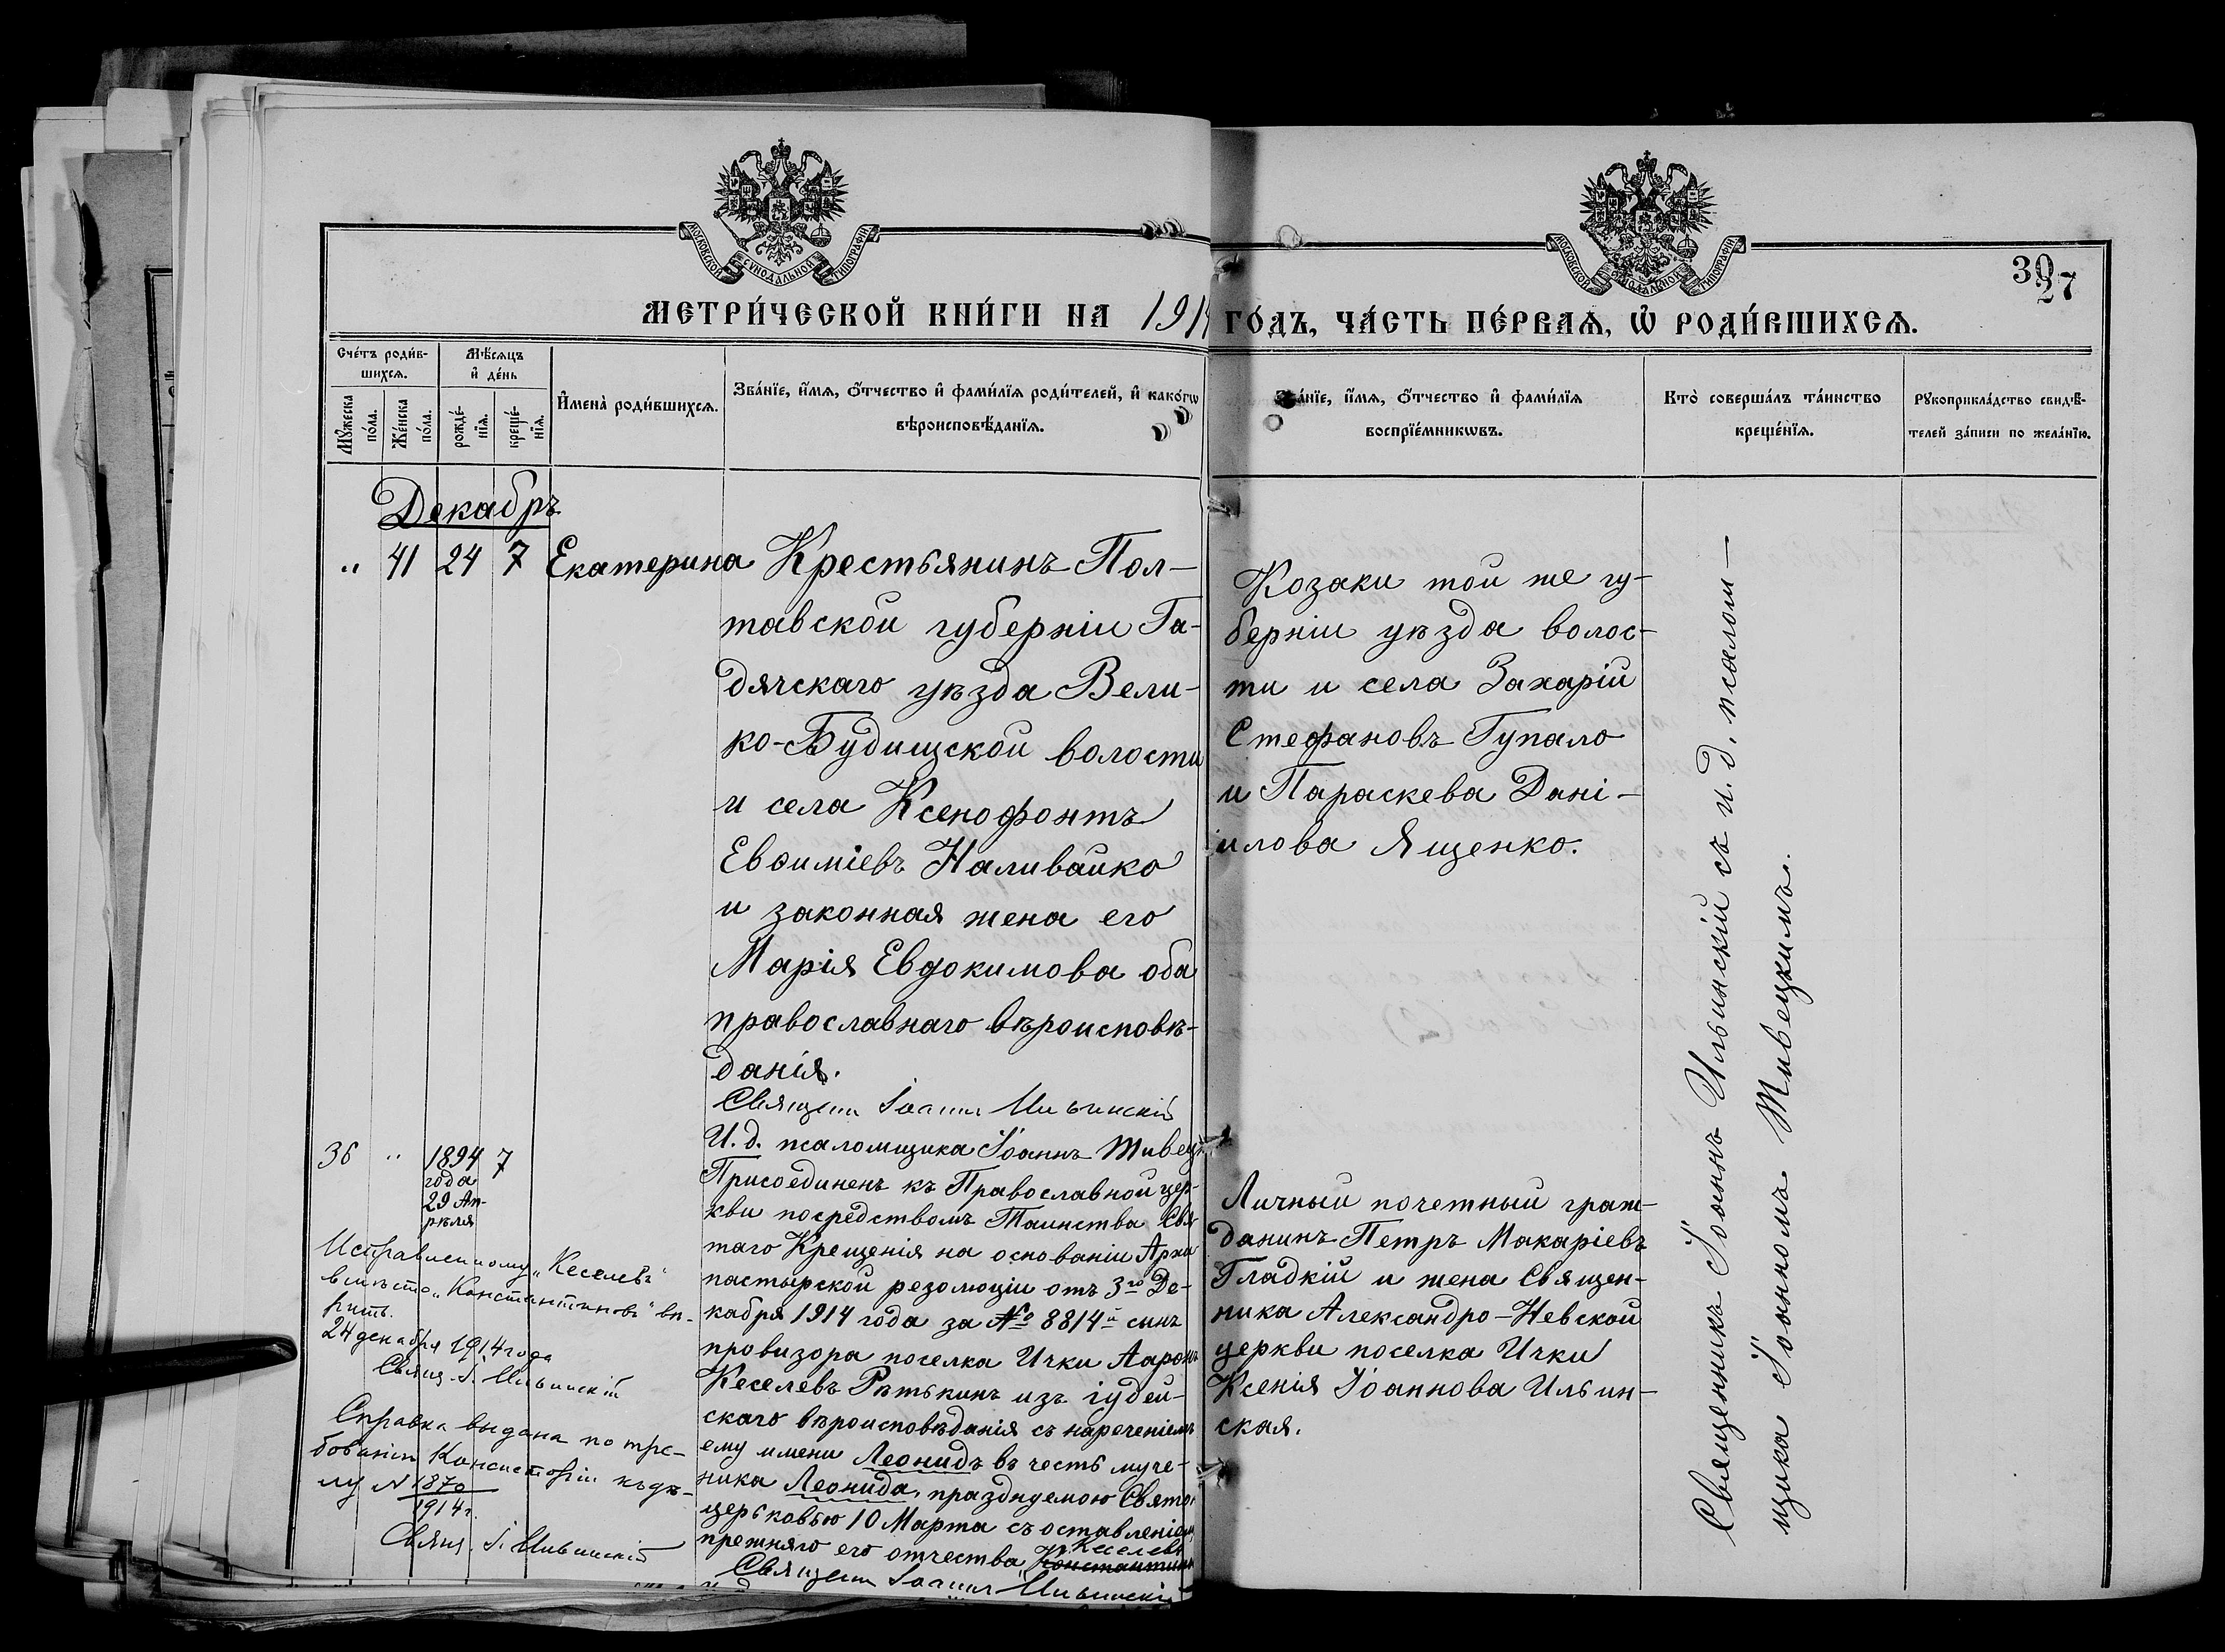 МОСКОВСКОЙ СѴНОДАЛЬНОЙ ТИПОГРАФІИ
МОСКОВСКОЙ СѴНОДАЛЬНОЙ ТИПОГРАФІИ
30
27
МЕТРИ́ЧЕСКОЙ КНИ́ГИ НА 1914 ГО́ДЪ, ЧА́СТЬ ПЕ́РВАѦ, Ѡ҆ РОДИ́ВШИХСѦ.
Сче́тъ роди́в-
шихсѧ.
Мѣ́сѧцъ
и҆ де́нь
Мꙋ́жеска
по́ла.
Же́нска
по́ла.
рожде́-
нїѧ.
креще́-
нїѧ.
И҆мена̀ роди́вшихсѧ.
Зва́нїе, и҆́мѧ, ѻ҆́тчество и҆ фами́лїѧ роди́телей, и҆ како́гѡ
вѣроисповѣ́данїѧ.
Зва́нїе, и҆́мѧ, ѻ҆́тчество и҆ фами́лїѧ
воспрїе́мникѡвъ.
Кто̀ соверша́лъ та́инство
креще́нїѧ.
Рꙋкоприкла́дство свидѣ́-
телей за́писи по жела́нїю.
Декабрь
" 41 24 7 Екатерина
Крестьянинъ Пол-
тавской губерніи Га-
дячскаго уѣзда Вели-
ко-Будищской волости
и села Ксенофонтъ
Евѳиміевъ Наливайко
и законная жена его
Марія Евдокимова оба
православнаго вѣроисповѣ-
данія.
Священ Іоаннъ Ильинскій
И. д. псаломщика Іоаннъ
Козаки той же гу-
берніи уѣзда волос-
ти и села Захарій
Стефановъ Гупало
и Параскева Дані-
илова Ященко.
Священникъ Іоаннъ Ильинскій съ и. д. псалом-
щика Іоанномъ Тивецкимъ.
36 " 1894 7
года
29 Ап-
рѣля
Присоединенъ къ Православной цер-
кви посредствомъ Таинства Свя
таго Крещенія на основаніи Архи
пастырской резолюціи отъ 3го Де-
кабря 1914 года за № 8814й сынъ
провизора поселка Ички Ааронъ
Кеселевъ Рѣтькинъ изъ іудей-
скаго вѣроисповѣданія съ нареченіемъ
ему имени Леонидъ въ честь муче-
ника Леонида, празднуемою Свято
церьковью 10 Марта съ оставленіемъ
прежняго его отчества "Кеселевъ
Константинъ
Священ Іоаннъ Ильинскій
Личный почетный граж-
данинъ Петръ Макаріевъ
Гладкій и жена Священ-
ника Александро-Невской
церкви поселка Ички
Ксенія Іоаннова Ильин-
ская.
Исправленному "Кеселевъ"
вмѣсто "Константиновъ" вѣ-
рить.
24 декабря 1914 года
Свящ. І. Ильинскій
Справка выдана по тре-
бованію Консисторіи къ дѣ-
лу № 1870
1914 г.
Свящ. І. Ильинскій